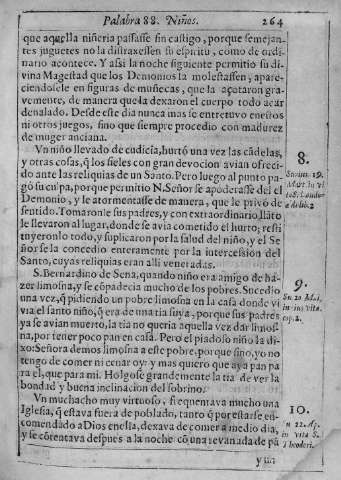 Palabra 88. Niños. 264
que aquella niñeria passasse sin castigo, porque semejan-
tes juguetes no la distraxessen su espiritu, como de ordi-
nario acontece. Y assi la noche siguiente permitio su di-
vina Magestad que los Demonios la molestassen, apare-
ciendosele en figuras de muñecas, que la açotaron gra-
vemente, de manera que la dexaron el cuerpo todo acar
denalado. Desde este dia nunca mas se entretuvo en estos
ni otros juegos, sino que siempre procedio con madurez
de muger anciana.
Vn niño llevado de cudicia, hurtó una vez las cãdelas,
y otras cosas, q̃ los fieles con gran devocion avian ofreci-
do ante las reliquias de un Santo. Pero luego al punto pa-
gó su culpa, porque permitio N. Señor se apoderasse del el
Demonio, y le atormentasse de manera, que le privó de
sentido. Tomaronle sus padres, y con extraordinario llãto
le llevaron al lugar, donde se avia cometido el hurto; resti
tuyeronlo todo, y suplicaron por la salud del niño, y el Se
ñor se la concedio enteramente por la intercession del
Santo, cuyas reliquias eran alli veneradas.
8.
S. Bernardino de Sena, quando niño era amigo de ha-
zer limosna, y se cõpadecia mucho de los pobres. Sucedio
una vez, q̃ pidiendo un pobre limosna en la casa donde vi
via el santo niño, q̃ era de una tia suya, porque sus padres
ya se avian muerto, la tia no queria aquella vez dar limos
na, por tener poco pan en casa. Pero el piadoso niño la di-
xo: Señora demos limosna a este pobre, porque sino, yo no
tengo de comer ni cenar oy: y mas quiero que aya pan pa
ra el, que para mi. Holgose grandemente la tia de ver la
bondad y buena inclinacion del sobrino.
9.
Su 20 Mai,
in ejus vita.
cap. 2.
Vn muchacho muy virtuoso, frequentava mucho una
Iglesia, q̃ estava fuera de poblado, tanto q̃ por estarse en-
comendado a Dios en ella, dexava de comer a medio dia,
y se cõtentava despues a la noche cõ una revanada de pã
10.
22. Ap.
in vita S.
Theodori.